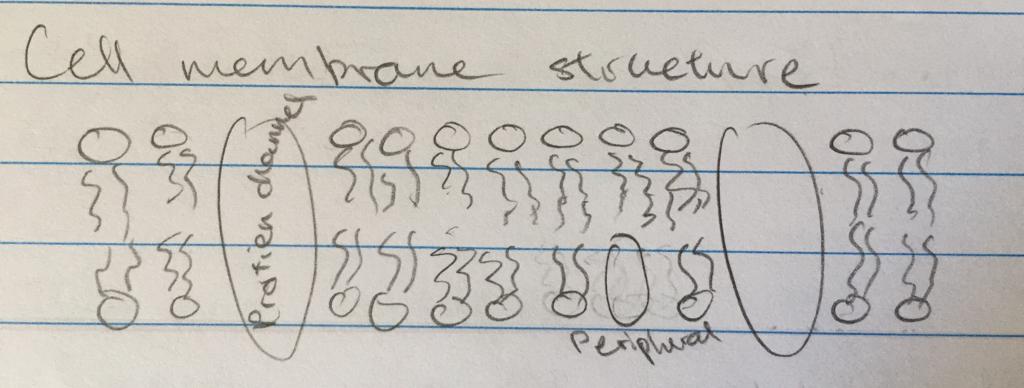 Cell membrane structure
Protien channel
Peripheral